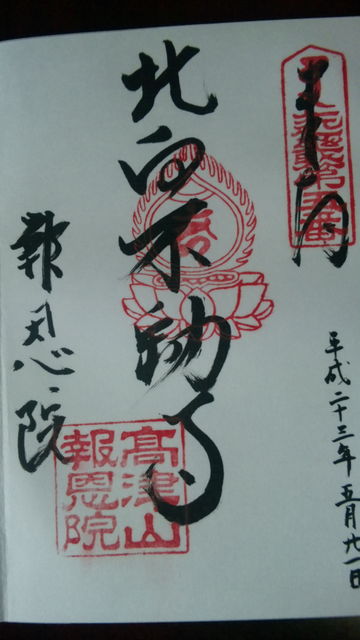 平成二十三年五月廿一日
北向不動尊
報恩院
高津山
報恩院